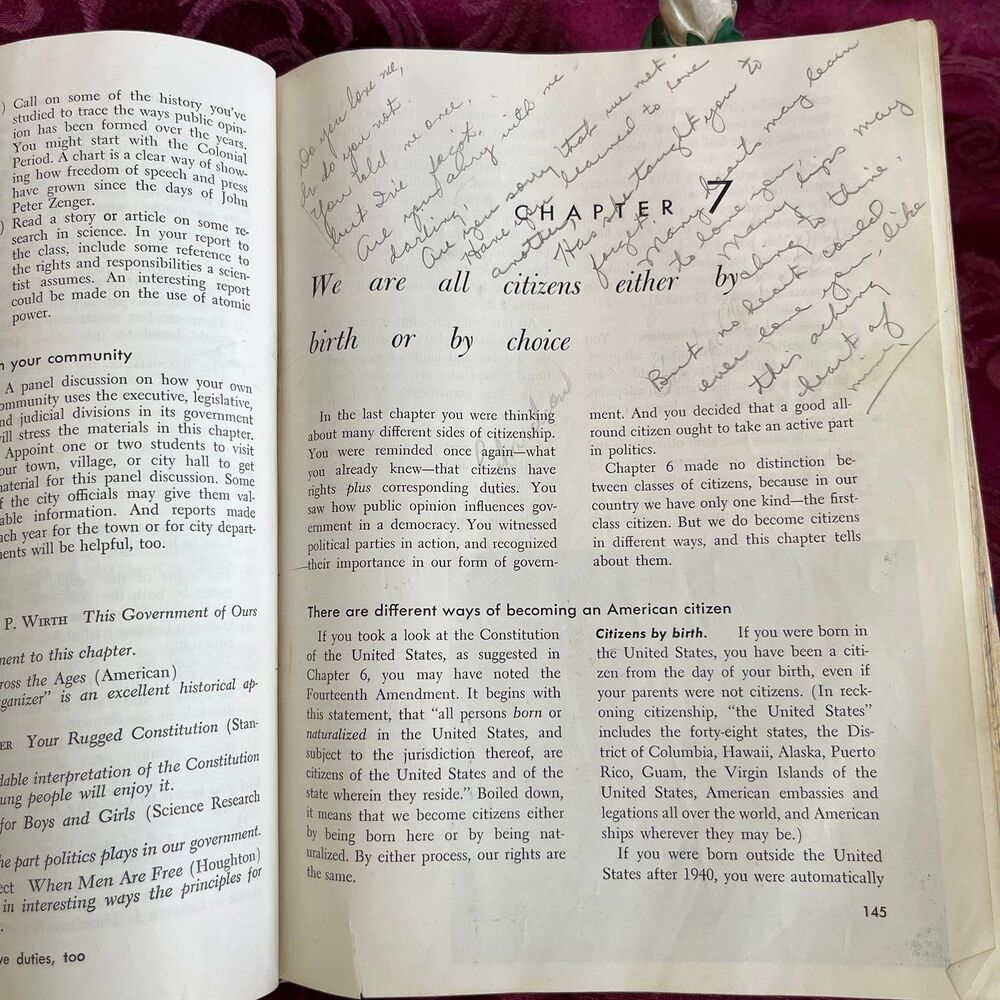 ) Call on some of the history you've
studied to trace the ways public opin-
ion has been formed over the years.
You might start with the Colonial
Period. A chart is a clear way of show-
ing how freedom of speech and press
have grown since the days of John
Peter Zenger.
) Read a story or article on some re-
search in science. In your report to
the class, include some reference to
the rights and responsibilities a scien-
tist assumes. An interesting report
could be made on the use of atomic
power.
n your community
A panel discussion on how your own
ommunity uses the executive, legislative,
nd judicial divisions in its government
ill stress the materials in this chapter.
Appoint one or two students to visit
our town, village, or city hall to get
aterial for this panel discussion. Some
f the city officials may give them val-
able information. And reports made
ach year for the town or for city depart-
ents will be helpful, too.
P. WIRTH This Government of Ours
ment to this chapter.
ross the Ages (American)
rganizer" is an excellent historical ap-
ER Your Rugged Constitution (Stan-
dable interpretation of the Constitution
ung people will enjoy it.
for Boys and Girls (Science Research
he part politics plays in our government.
ect When Men Are Free (Houghton)
in interesting ways the principles for
ve duties, too
Do you love me,
Or do you not.
You told me once,
but I've forgot.
Are you angry with me
darling,
Are you sorry that we met.
Have you learned to love
another,
Has she taught you to
forget.
Many hearts may learn
to love you
Many lips may
cling to thine,
But no heart could
ever love you, like
this aching
heart of
mine,
CHAPTER 7
We are all citizens either by
birth or by choice
In the last chapter you were thinking
about many different sides of citizenship.
You were reminded once again—what
you already knew—that citizens have
rights plus corresponding duties. You
saw how public opinion influences gov-
ernment in a democracy. You witnessed
political parties in action, and recognized
their importance in our form of govern-
ment. And you decided that a good all-
round citizen ought to take an active part
in politics.
Chapter 6 made no distinction be-
tween classes of citizens, because in our
country we have only one kind—the first-
class citizen. But we do become citizens
in different ways, and this chapter tells
about them.
There are different ways of becoming an American citizen
If you took a look at the Constitution
of the United States, as suggested in
Chapter 6, you may have noted the
Fourteenth Amendment. It begins with
this statement, that "all persons born or
naturalized in the United States, and
subject to the jurisdiction thereof, are
citizens of the United States and of the
state wherein they reside." Boiled down,
it means that we become citizens either
by being born here or by being nat-
uralized. By either process, our rights are
the same.
Citizens by birth. If you were born in
the United States, you have been a citi-
zen from the day of your birth, even if
your parents were not citizens. (In reck-
oning citizenship, "the United States"
includes the forty-eight states, the Dis-
trict of Columbia, Hawaii, Alaska, Puerto
Rico, Guam, the Virgin Islands of the
United States, American embassies and
legations all over the world, and American
ships wherever they may be.)
If you were born outside the United
States after 1940, you were automatically
145